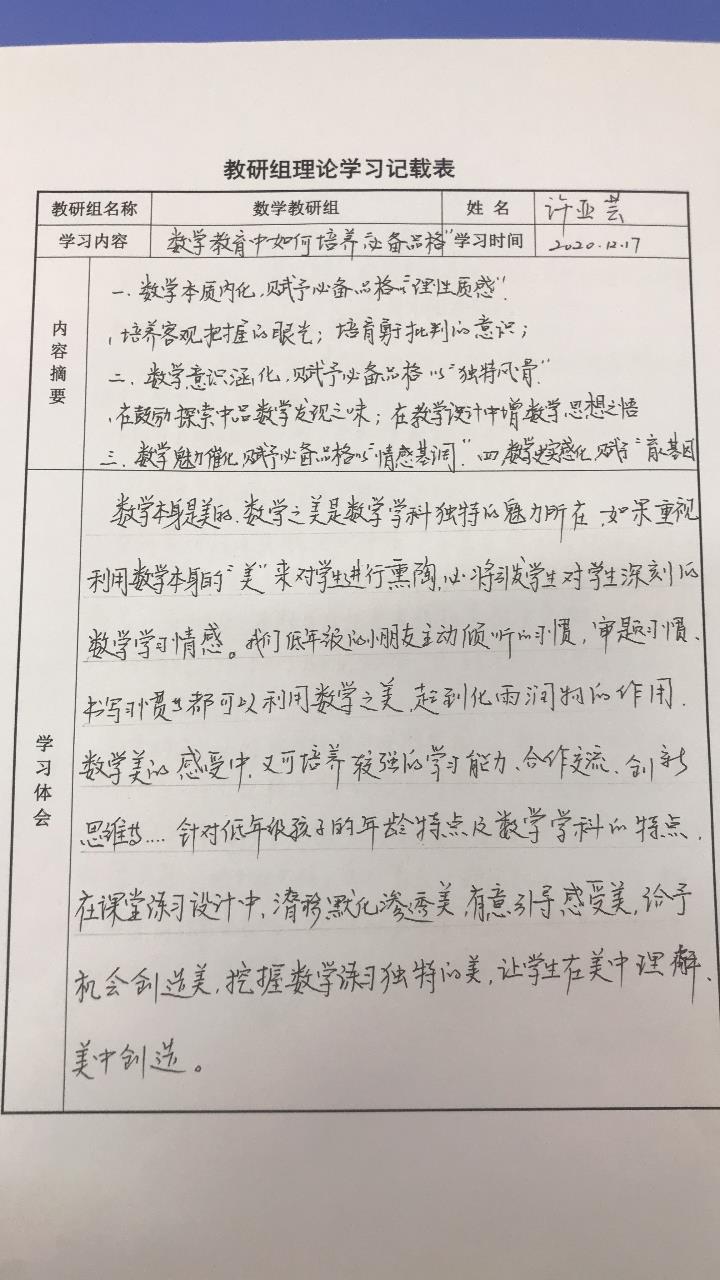 教研组理论学习记载表
教研组名称 数学教研组 姓名 许亚芸
学习内容 数学教育中如何培养“必备品格” 学习时间 2020.12.17
内容摘要
一、数学本质内化,赋予必备品格以“理性质感”.
1.培养客观把握的眼光;培育勇于批判的意识;
二、数学意识涵化,赋予必备品格以“独特风骨”
1.在鼓励探索中品数学发现之味;在教学设计中增数学思想之悟
三、数学魅力催化,赋予必备品格以“情感基调”.四、数学史实感化,赋予“育人基因
学习体会
数学本身是美的.数学之美是数学学科独特的魅力所在,如果重视
利用数学本身的“美”来对学生进行熏陶,必将引发学生对学生深刻的
数学学习情感。我们低年级的小朋友主动倾听的习惯,审题习惯、
书写习惯等都可以利用数学之美,起到化雨润物的作用.
数学美的感受中,又可培养较强的学习能力、合作交流、创新
思维等....针对低年级孩子的年龄特点及数学学科的特点,
在课堂练习设计中,潜移默化渗透美,有意引导感受美,给予
机会创造美,挖掘数学练习独特的美,让学生在美中理解、
美中创造。